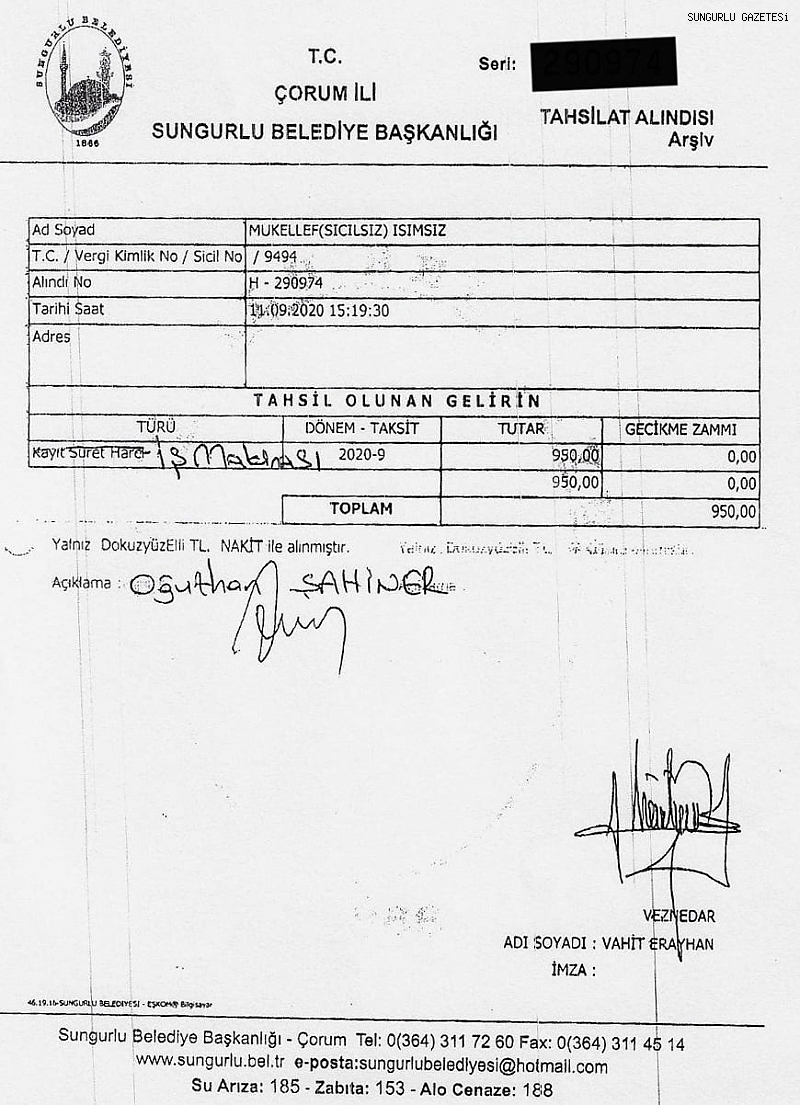 SUNGURLU GAZETESİ
SUNGURLU BELEDİYESİ
1866
T.C.
ÇORUM İLİ
SUNGURLU BELEDİYE BAŞKANLIĞI
Seri: 290974
TAHSİLAT ALINDISI
Arşiv
Ad Soyad MUKELLEF(SICILSIZ) ISIMSIZ
T.C. / Vergi Kimlik No / Sicil No / 9494
Alındı No H - 290974
Tarihi Saat 11.09.2020 15:19:30
Adres
TAHSİL OLUNAN GELİRİN
TÜRÜ DÖNEM - TAKSİT TUTAR GECİKME ZAMMI
Kayıt Suret Harcı İş Makinası 2020-9 950,00 0,00
950,00 0,00
TOPLAM 950,00
Yalnız DokuzyüzElli TL. NAKİT ile alınmıştır.
Açıklama : Oğuzhan ŞAHİNER
VEZNEDAR
ADI SOYADI : VAHİT ERAYHAN
İMZA :
46.19.16-SUNGURLU BELEDİYESİ - EŞKOM® Bilgisayar
Sungurlu Belediye Başkanlığı - Çorum Tel: 0(364) 311 72 60 Fax: 0(364) 311 45 14
www.sungurlu.bel.tr e-posta:sungurlubelediyesi@hotmail.com
Su Arıza: 185 - Zabıta: 153 - Alo Cenaze: 188